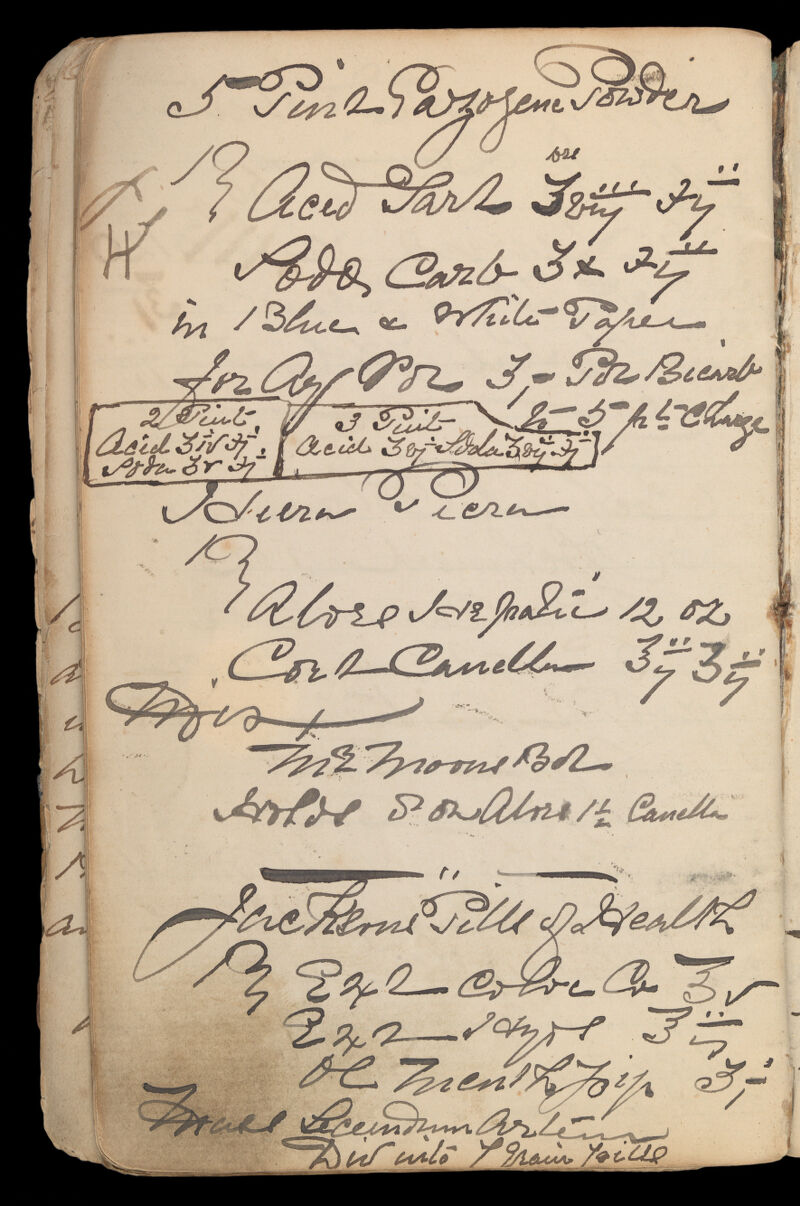 5 Pint Gazogene Powder
℞ Acid Tart ʒviij
Soda Carb ʒx
in Blue & White Paper
for Pot Bicarb
to 5 pt Charge
2 Pint
Acid ʒiv
Soda ʒv
3 Pint
Acid ʒvj Soda
Hiera Picra
℞
Aloes Hepatic 12 oz
Cort Canella ʒiij ʒij
Mix
Mc Moons Bot
Holds 8 oz Aloes 1½ Canella
Jacksons Pills of Health
℞ Ext Coloc Co ʒv
Ext Hyos ʒij
Ol Menth Pip ʒi
Mass Secundum Artem
Div into Grain Pills